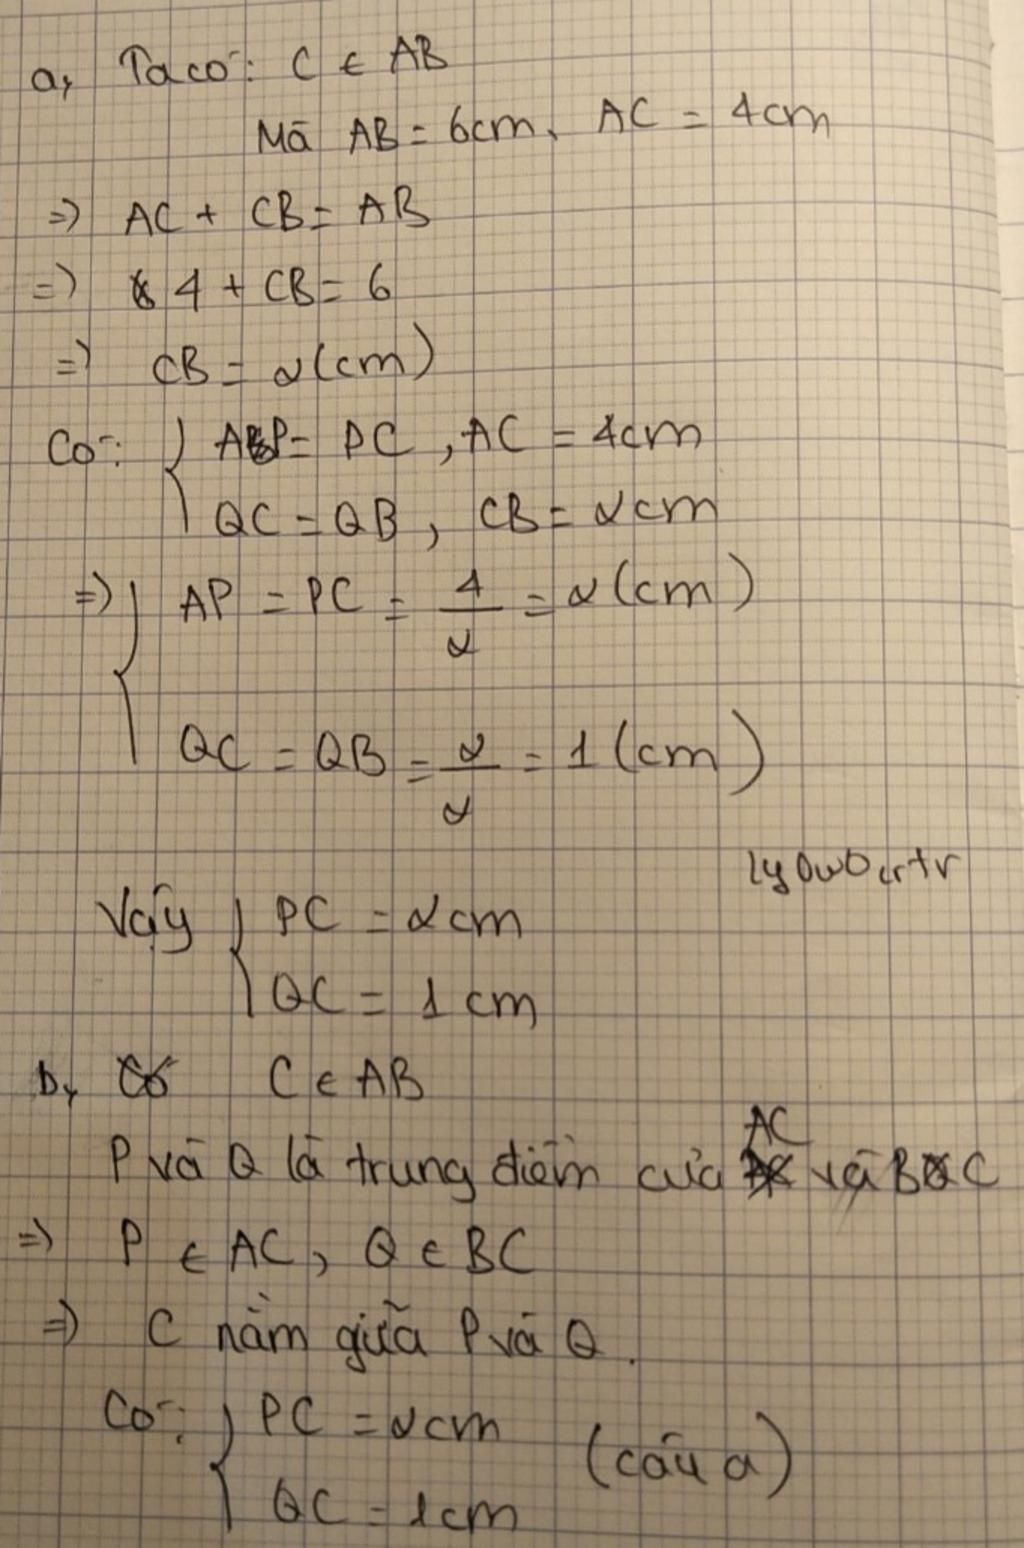 a, Ta có: C ∈ AB
Mà AB = 6cm, AC = 4cm
=> AC + CB = AB
=> 4 + CB = 6
=> CB = 2(cm)
Có: { AP = PC, AC = 4cm
QC = QB, CB = 2cm
=> { AP = PC = 4/2 = 2(cm)
QC = QB = 2/2 = 1(cm)
Vậy { PC = 2cm
QC = 1cm
b, Có C ∈ AB
P và Q là trung điểm của AC và BC
=> P ∈ AC, Q ∈ BC
=> C nằm giữa P và Q.
Có: { PC = 2cm (câu a)
QC = 1cm